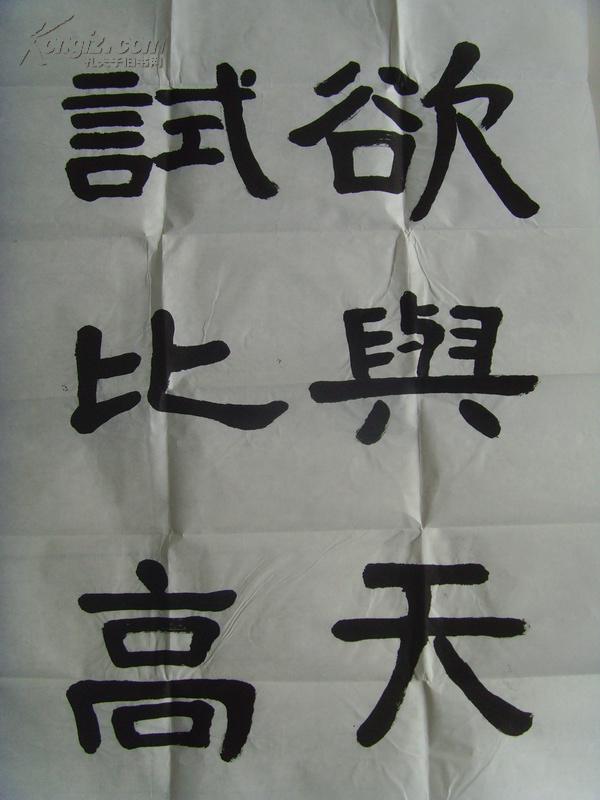 欲與天
試比高
Kongfz.com
孔夫子旧书网